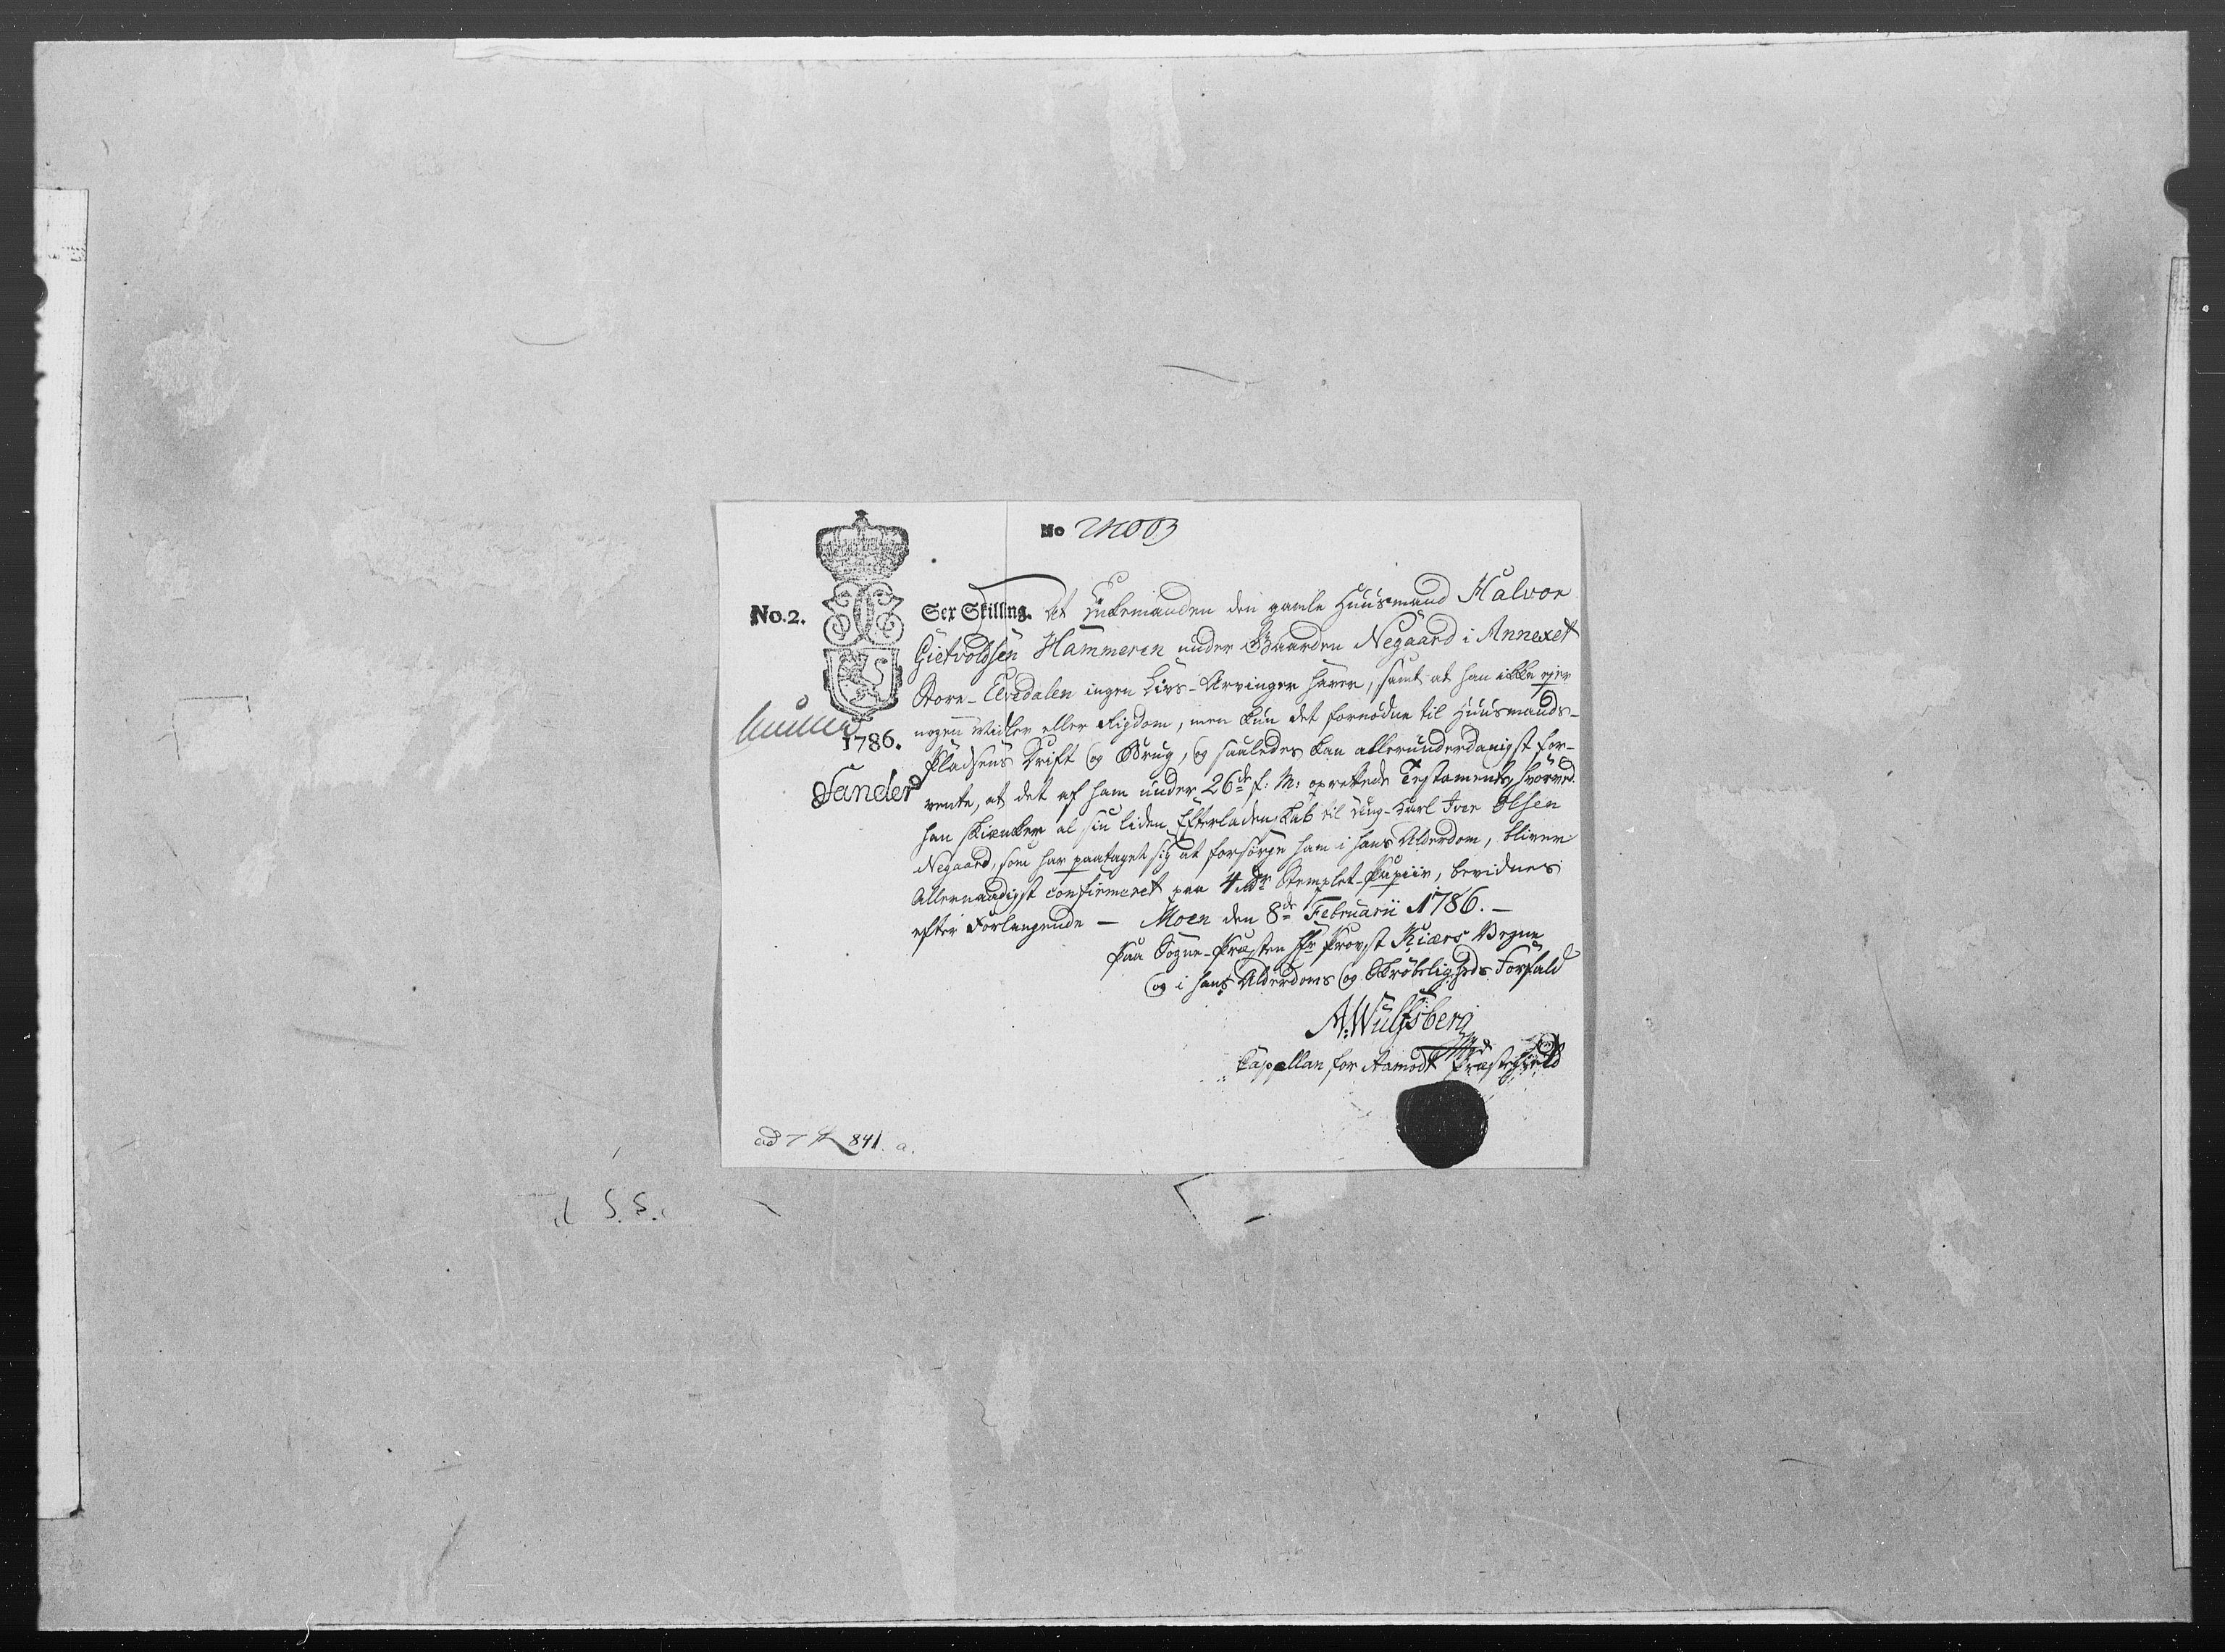 No 21003
No. 2.
Sex Skilling. At Enkemanden den gamle Huusmand Halvor
Gietvoldsen Hammeren under Gaarden Negaard i Annexet
Store-Elvedalen ingen Livs-Arvinger haver, samt at han ikke ejer
nogen Midler eller Rigdom, men kun det fornødne til Huusmands-
1786.
Pladsens Drift og Brug, og saaledes kan allerunderdanigst for-
Sander
vente, at det af ham under 26de f: M: oprettede Testamente, hvorved
han skiencker al sin liden Efterladenskab til Ung-Karl Iver Olsen
Negaard, som har paataget sig at forsørge ham i hans Alderdom, bliver
Allernaadigst confirmeret paa 4 Mdr Stemplet-Papiir, bevidnes
efter Forlangende — Moen den 8de Februarii 1786. —
Paa Sogne-Præsten Hr Provst Kiærs Vegne
og i hans Alderdoms og Skrøbeligheds Forfald
A. Wulfsberg
Capellan for Aamodt Præstegield
ad 7 841. a.
S. S.